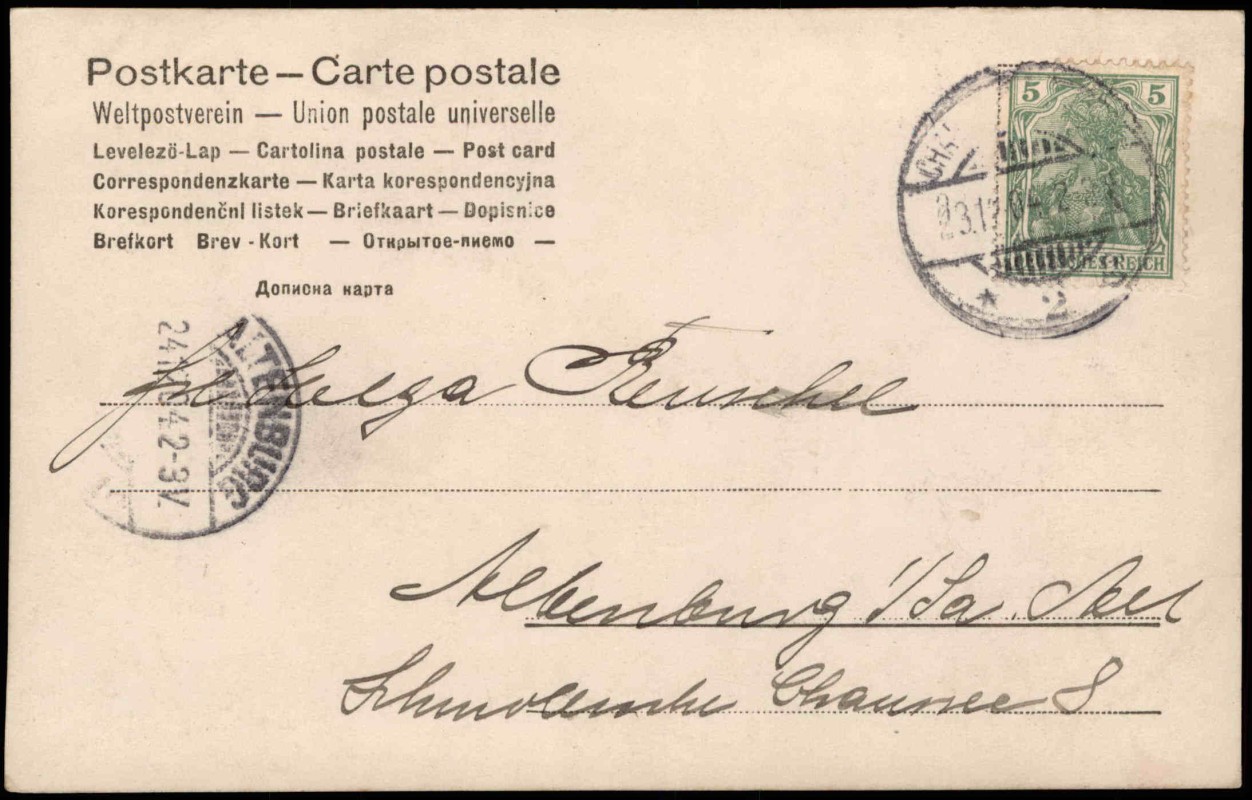 Postkarte – Carte postale
Weltpostverein — Union postale universelle
Levelezö-Lap — Cartolina postale — Post card
Correspondenzkarte — Karta korespondencyjna
Korespondenčnl listek — Briefkaart — Dopisnice
Brefkort Brev - Kort — Открытое-пиемо —
Дописна карта
5 5
REICH
CH
2
ALTENBURG
2-3V.
Frl Helga Reuschel
Altenburg i/Sa. Atel
Schmöllnsche Chaussee 8